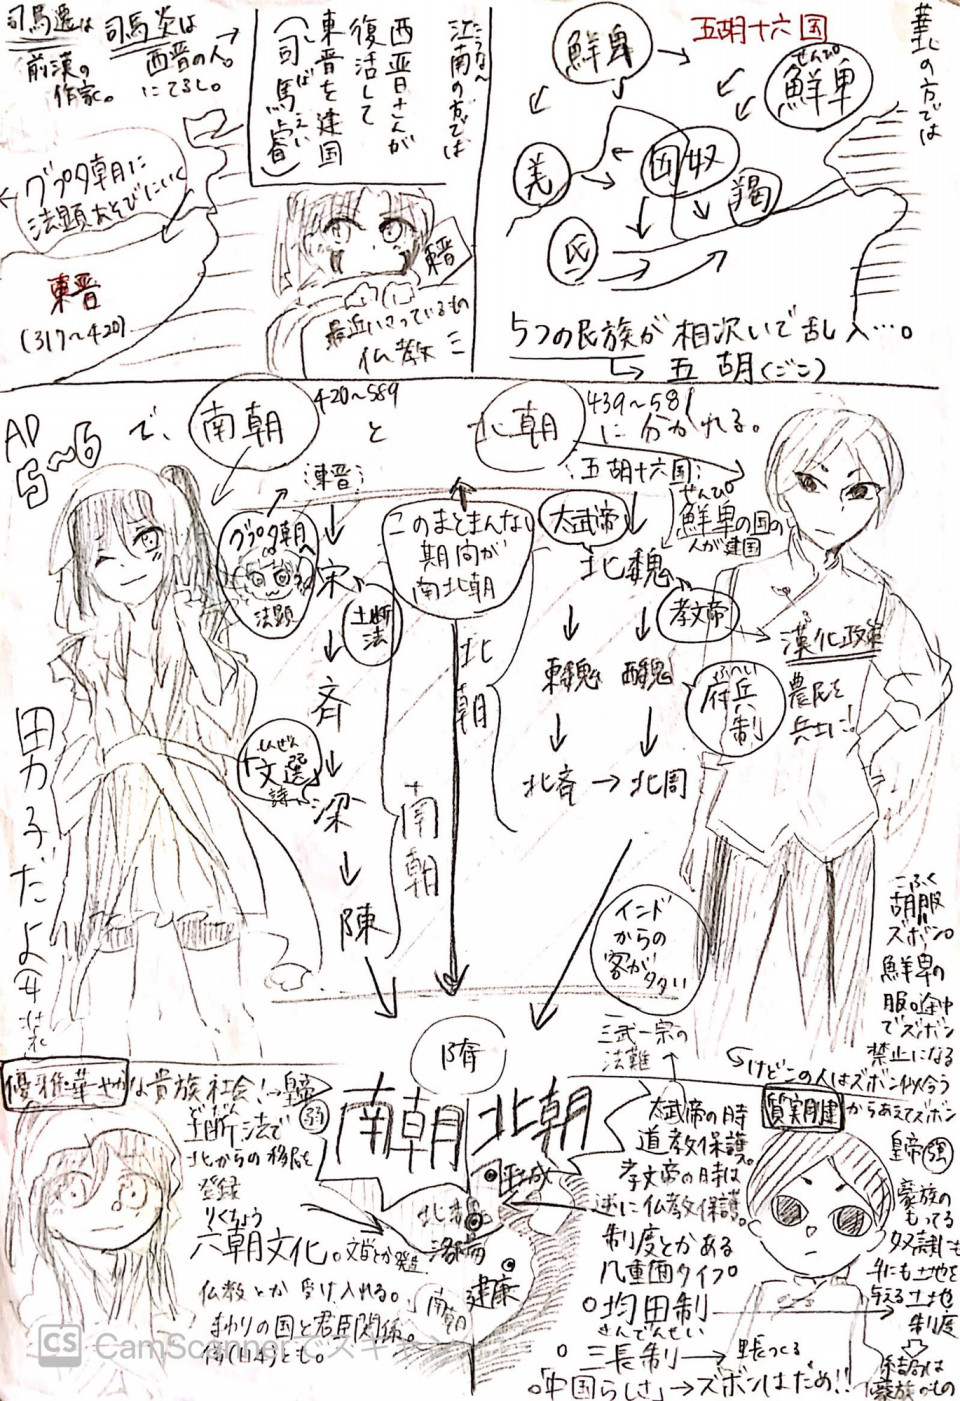 華北の方では
五胡十六国
鮮卑
せんぴ
鮮卑
羌
匈奴
羯
氐
5つの民族が相次いで乱入…。
五胡(ごこ)
江南の方では
西晋さんが
復活して
東晋を建国
(司馬睿)
司馬遷は
前漢の
作家。
司馬炎は
西晋の人。
にてるし。
グプタ朝に
法顕あそびにいく
東晋
(317〜420)
東晋
最近はまっているもの
仏教
AD
5〜6で、
南朝
420〜589
と
北朝
439〜581
に分かれる。
東晋
グプタ朝へ
法顕
宋
土断
法
斉
文選
詩
梁
陳
このまとまんない
期間が
南北朝
北朝
南朝
五胡十六国
せんぴ
鮮卑の国の
人が建国
太武帝
北魏
孝文帝
漢化政策
東魏
西魏
府兵
制
農民を
兵士に!
北斉→北周
インド
からの
客が多い
隋
こふく
胡服
ズボン。
鮮卑の
服。途中
でズボン
禁止になる
けどこの人はズボン似合う
からあえてズボン
優雅華やかな貴族社会!→皇帝
弱
どだん
土断法で
北からの移民を
登録
りくちょう
六朝文化。文学とか発達
仏教とか受け入れる。
まわりの国と君臣関係。
南朝
北朝
平城
洛陽
建康
南朝
三武一宗の
法難
太武帝の時
道教保護。
孝文帝の時は
逆に仏教保護。
制度とかある
几重面タイプ。
均田制
きんでんせい
三長制→
「中国らしさ」→ズボンはだめ!!
質実剛健
皇帝強
豪族の
もってる
奴隷にも
牛にも土地を
与える土地
制度
結局は
豪族のもの
CS CamScanner でスキャン